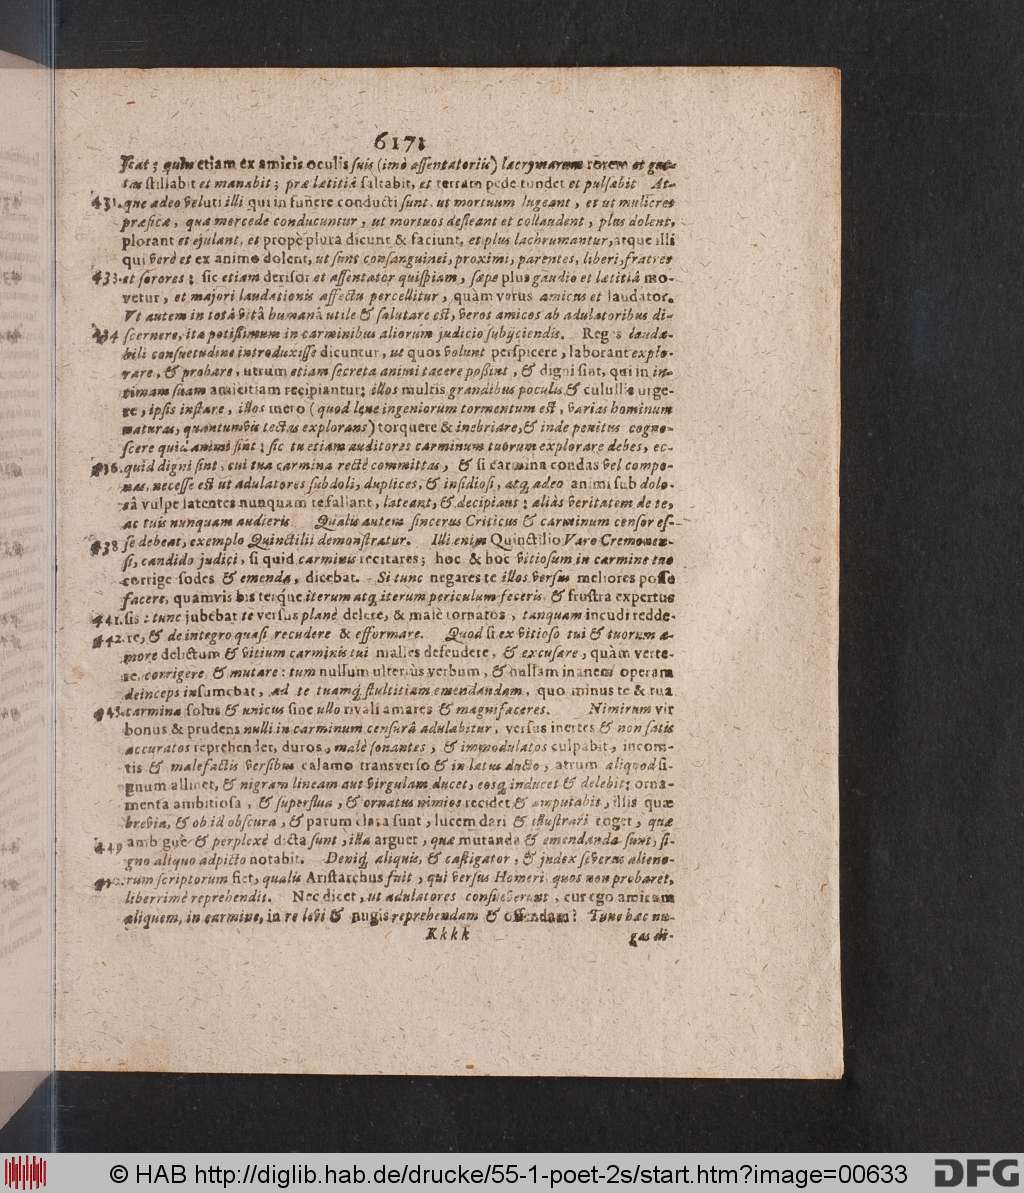 617
scat; quin etiam ex amicis oculis suis (imò assentatoriis) lacrymarum rorem et gut-
tas stillabit et manabit; præ lætitiâ saltabit, et terram pede tundet et pulsabit At-
431. que adeo veluti illi qui in funere conducti sunt, ut mortuum lugeant, et ut mulieres
præficæ, quæ mercede conducuntur, ut mortuos defleant et collaudent, plus dolent,
plorant et ejulant, et propè plura dicunt & faciunt, et plus lachrumantur, atque illi
qui verè et ex animo dolent, ut sunt consanguinei, proximi, parentes, liberi, fratres
433. et sorores; sic etiam derisor et assentator quispiam, sæpe plus gaudio et lætitiâ mo-
vetur, et majori laudationis affectu percellitur, quàm verus amicus et laudator.
Vt autem in totâ vitâ humanâ utile & salutare est, veros amicos ab adulatoribus di-
434 scernere, ita potissimum in carminibus aliorum judicio subijciendis. Reges laudæ-
bili consuetudine introduxisse dicuntur, ut quos volunt perspicere, laborant explo-
rare, & probare, utrum etiam secreta animi tacere possint, & digni sint, qui in in-
timam suam amicitiam recipiantur; illos multis grandibus poculis & culullis urge-
re, ipsis instare, illos mero (quod lene ingeniorum tormentum est, varias hominum
naturas, quantumvis tectas explorans) torquere & inebriare, & inde penitus cogno-
scere quid animi sint; sic tu etiam auditores carminum tuorum explorare debes, ec-
436. quid digni sint, cui tua carmina rectè committas, & si carmina condas vel compo-
nas, necesse est ut adulatores subdoli, duplices, & insidiosi, atq; adeo animi sub dolo-
sâ vulpe latentes nunquam te fallant, lateant, & decipiant; aliàs veritatem de te,
ac tuis nunquam audieris. Qualis autem sincerus Criticus & carminum censor es-
438 se debeat, exemplo Quinctilii demonstratur. Illi enim Quinctilio Varo Cremonen-
si, candido judici, si quid carminis recitares; hoc & hoc vitiosum in carmine tuo
corrige sodes & emenda, dicebat. Si tunc negares te illos versus meliores posse
facere, quamvis bis terque iterum atq; iterum periculum feceris & frustra expertus
441. sis; tunc jubebat te versus planè delere, & malè tornatos, tanquam incudi redde-
442. re, & de integro quasi recudere & efformare. Quod si ex vitioso tui & tuorum a-
more delictum & vitium carminis tui malles defendere, & excusare, quàm verte-
re, corrigere & mutare: tum nullum ulteriùs verbum, & nullam inanem operam
deinceps insumebat, ad te tuamq; stultitiam emendandam, quo minus te & tua
443. carmina solus & unicus sine ullo rivali amares & magnifaceres. Nimirum vir
bonus & prudens nulli in carminum censurâ adulabitur, versus inertes & non satis
accuratos reprehendet, duros, malè sonantes, & immodulatos culpabit, incom-
tis & malefactis versibus calamo transverso & in latus ducto, atrum aliquod si-
gnum allinet, & nigram lineam aut virgulam ducet, eosq; inducet & delebit; orna-
menta ambitiosa, & superflua, & ornatus nimios recidet & amputabit, illis quæ
brevia, & ob id obscura, & parum clara sunt, lucem dari & illustrari coget, quæ
449 ambiguè & perplexè dicta sunt, illa arguet, quæ mutanda & emendanda sunt, si-
gno aliquo adpicto notabit. Deniq; aliquis, & castigator, & judex severus alieno-
450. rum scriptorum fiet, qualis Aristarchus fuit, qui versus Homeri quos non probaret,
liberrimè reprehendit. Nec dicet, ut adulatores consueverunt, cur ego amicum
aliquem, in carmine, in re levi & nugis reprehendam & offendam? Tunc hæc nu-
Kkkk gæ di-
© HAB http://diglib.hab.de/drucke/55-1-poet-2s/start.htm?image=00633 DFG